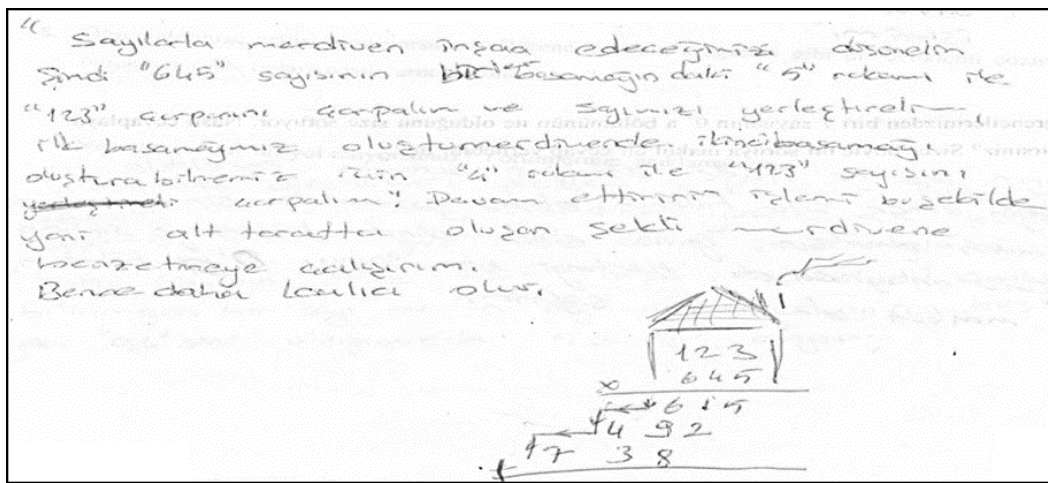 "
Sayılarla merdiven inşaa edeceğimizi düşünelim
Şimdi "645" sayısının basamağındaki "5" rakamı ile
"123" çarpını çarpalım ve sayımızı yerleştirelim,
ilk basamağımız oluştu merdivende ikinci basamağı
oluşturabilmemiz için "4" rakamı ile "123" sayısını
çarpalım! Devam ettiririm işlemi bu şekilde
yani alt tarafta oluşan şekli merdivene
benzetmeye çalışırım.
Bence daha kalıcı olur.
123
x 645
615
492
738
+